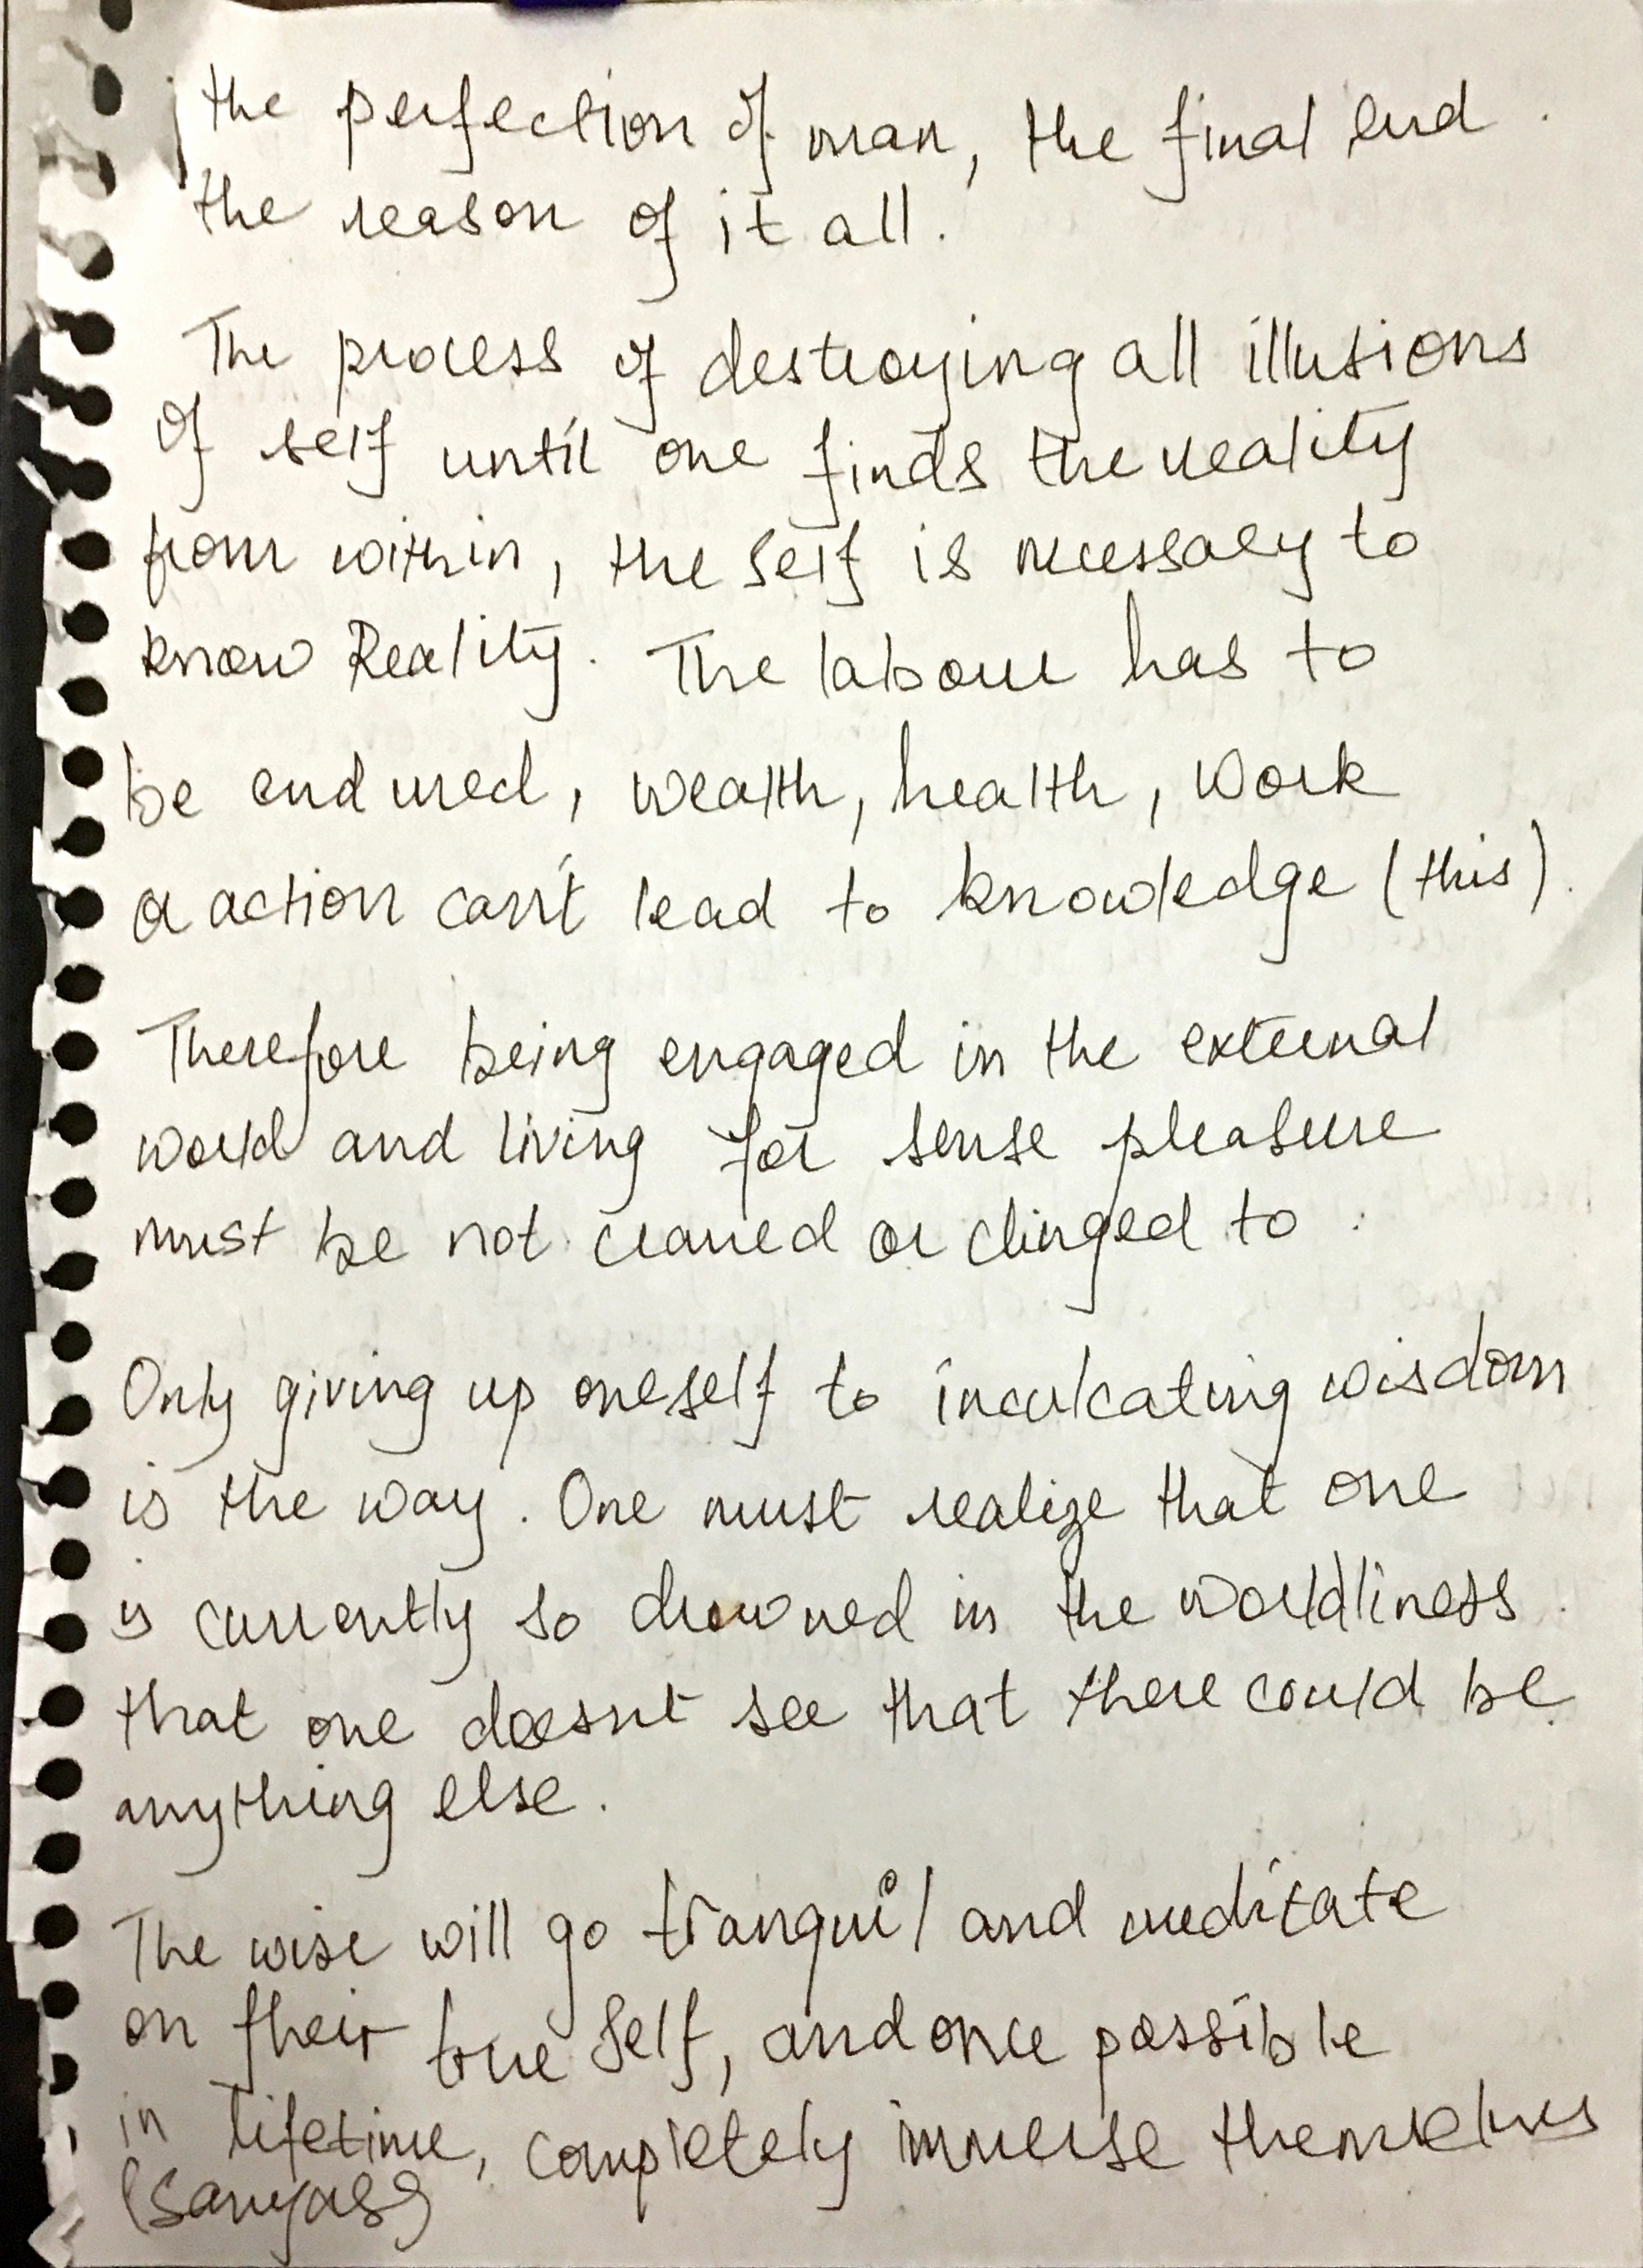 the perfection of man, the final end.
the reason of it all.
The process of destroying all illusions
of self until one finds the reality
from within, the self is necessary to
know Reality. The labour has to
be endured, wealth, health, work
or action can't lead to knowledge (this).
Therefore being engaged in the external
world and living for sense pleasure
must be not craved or clinged to.
Only giving up oneself to inculcating wisdom
is the way. One must realize that one
is currently so drowned in the worldliness
that one doesnt see that there could be
anything else.
The wise will go tranquil and meditate
on their true self, and once possible
in lifetime, completely immerse themselves
(sanyas)